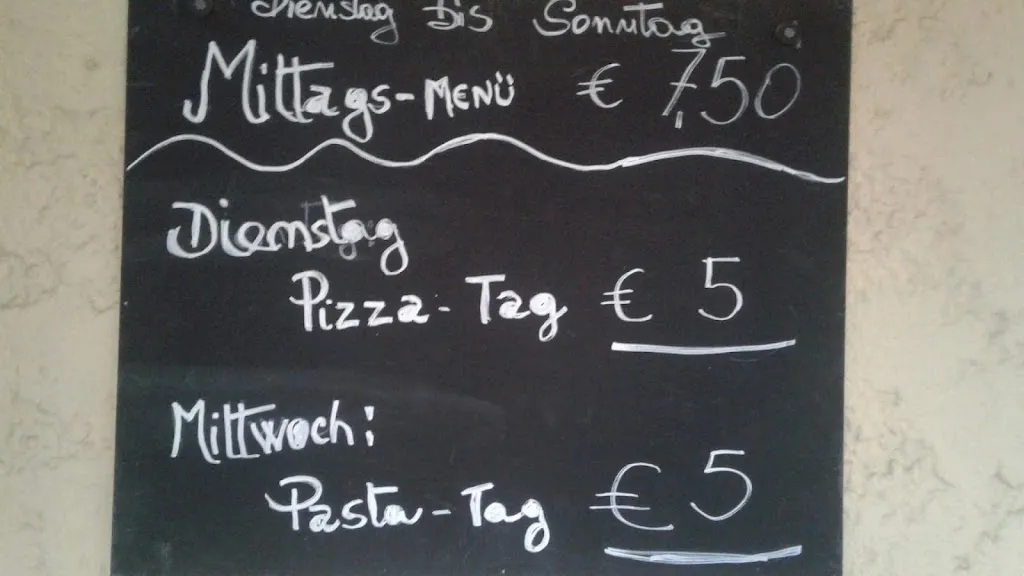 Dienstag bis Sonntag
Mittags-MENÜ € 7,50
Dienstag
Pizza-Tag € 5
Mittwoch:
Pasta-Tag € 5